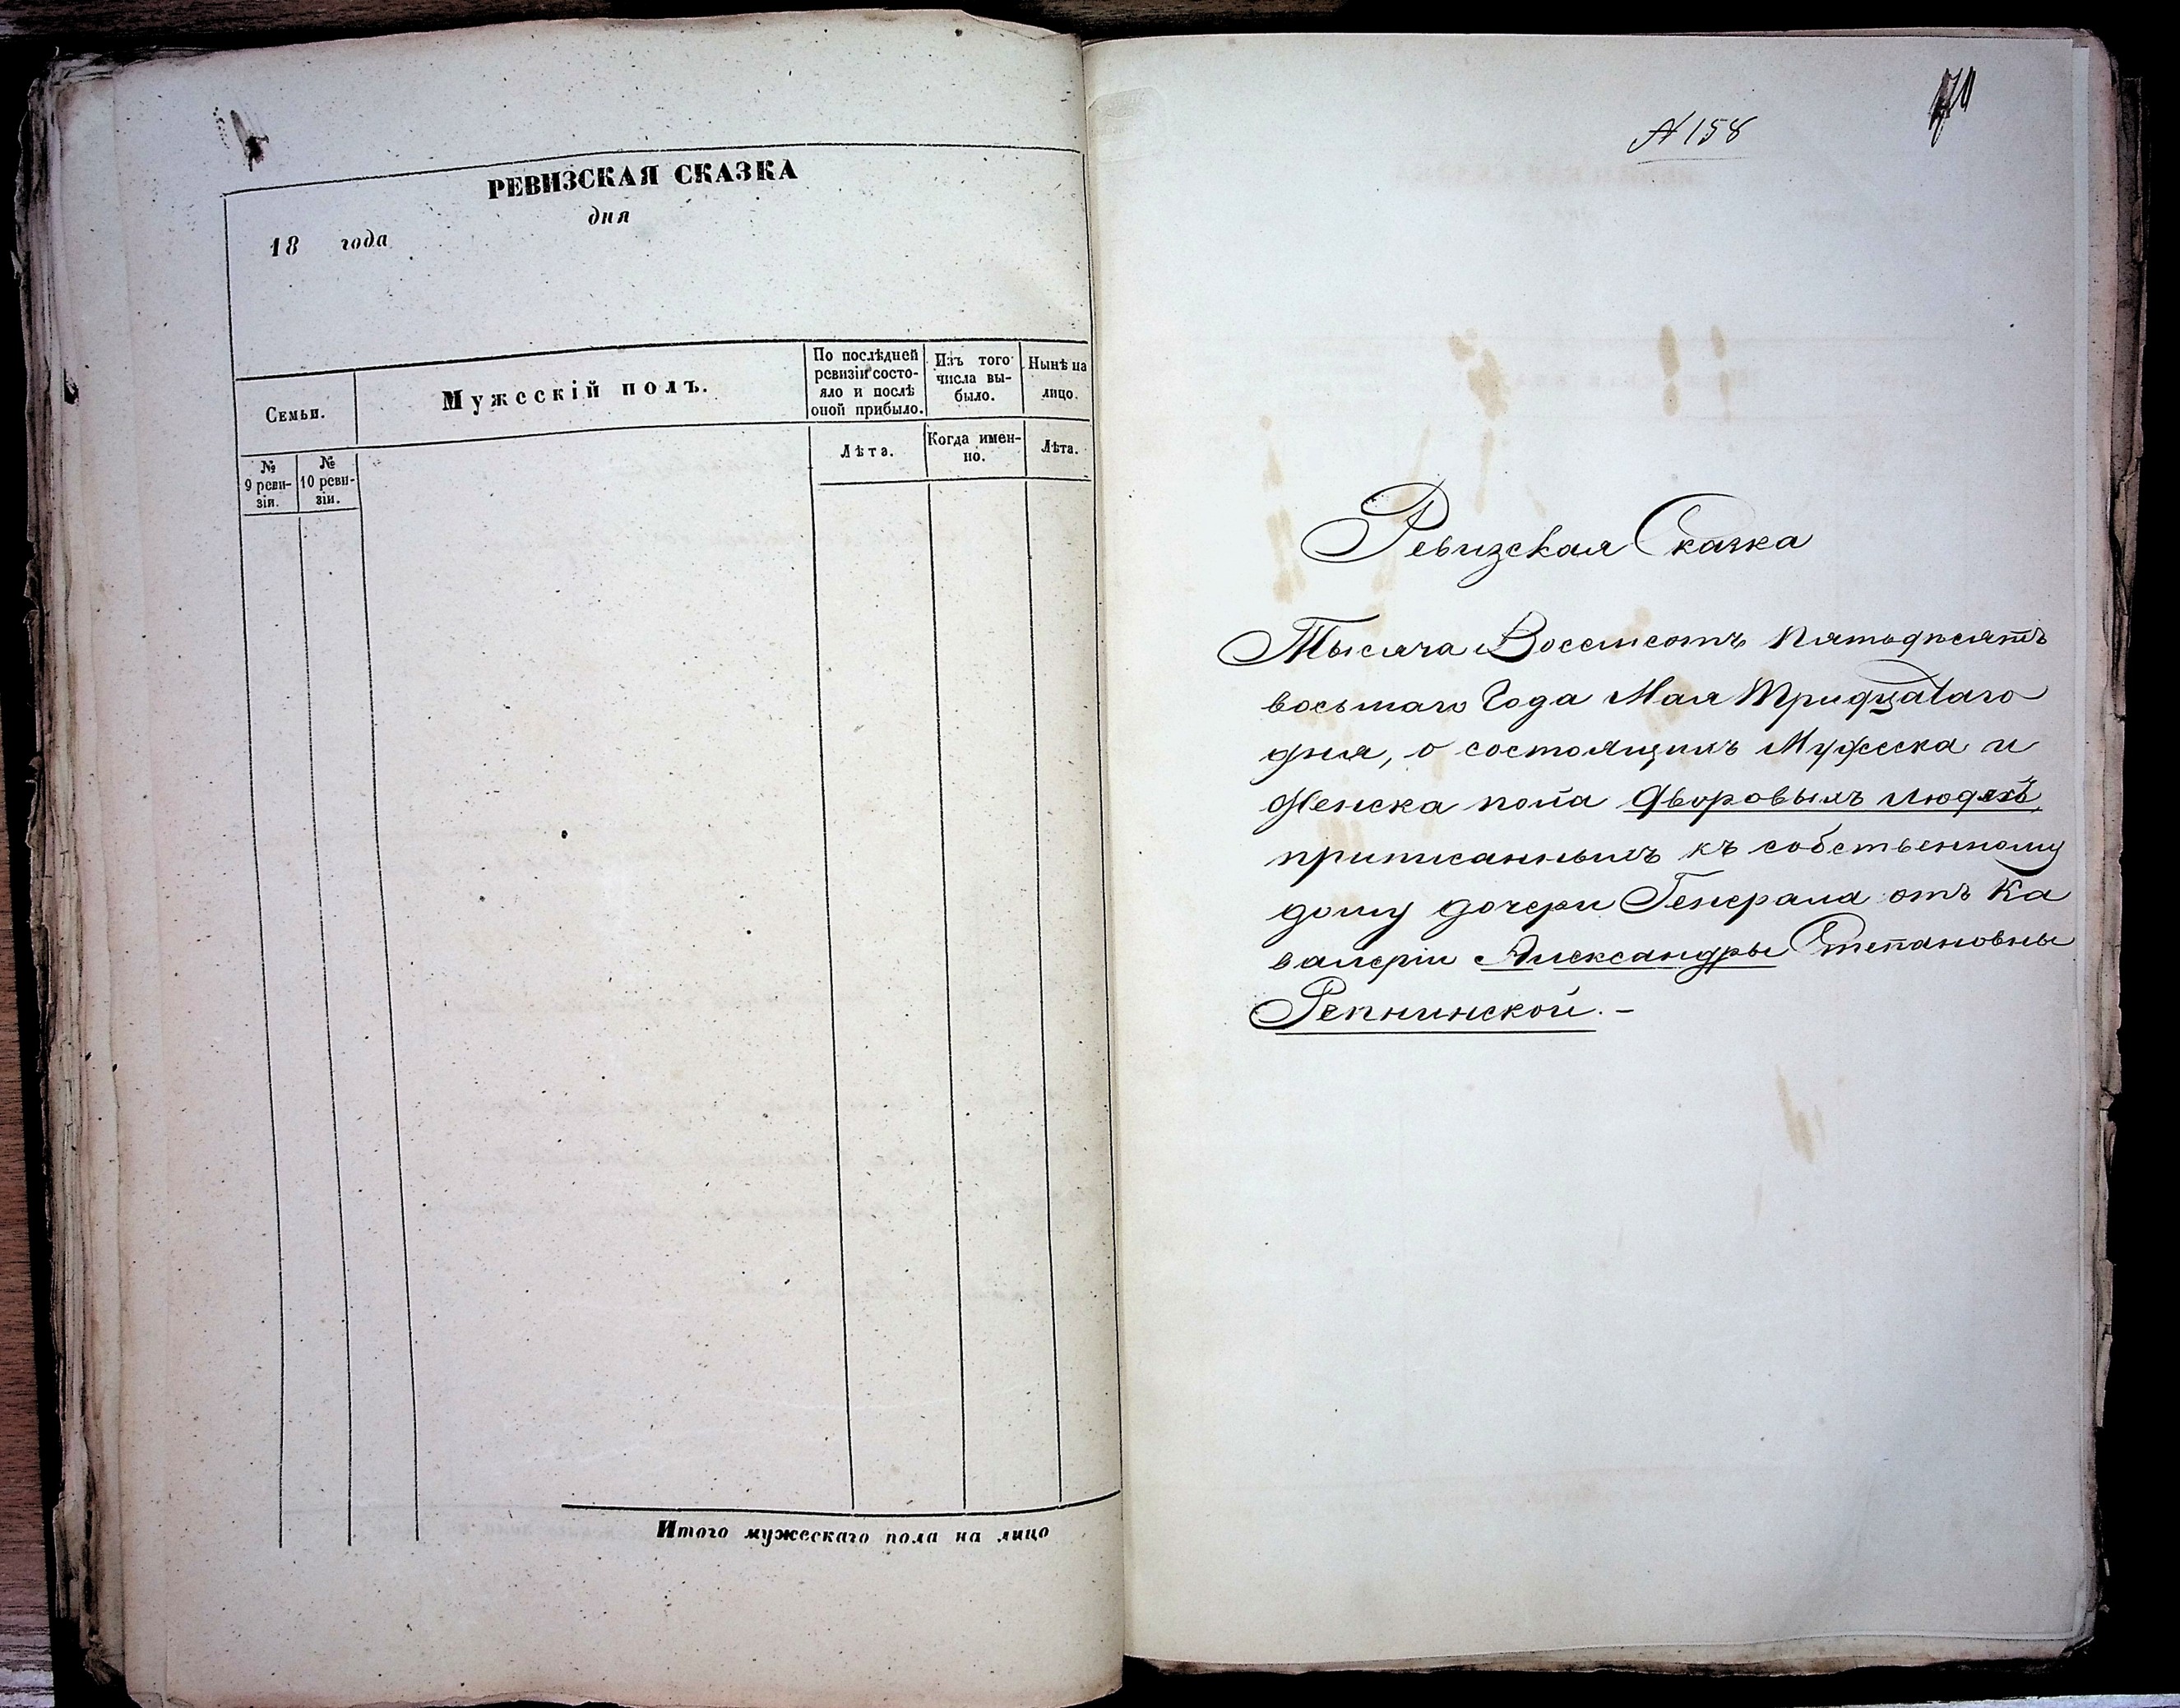 РЕВИЗСКАЯ СКАЗКА
дня
18 года
Семьи.
Мужескій полъ.
По послѣдней
ревизіи состо-
яло и послѣ
оной прибыло.
Изъ того
числа вы-
было.
Нынѣ на
лицо.
№
9 реви-
зіи.
№
10 реви-
зіи.
Лѣта.
Когда имен-
но.
Лѣта.
Итого мужескаго пола на лицо
№ 158
Ревизская Сказка
Тысяча Восемсотъ пятьдесятъ
восьмаго Года Мая Тридцатаго
дня, о состоящихъ Мужеска и
Женска пола дворовыхъ людяхъ
приписанныхъ къ собственному
дому дочери Генерала отъ Ка
валеріи Александры Степановны
Репнинской. –